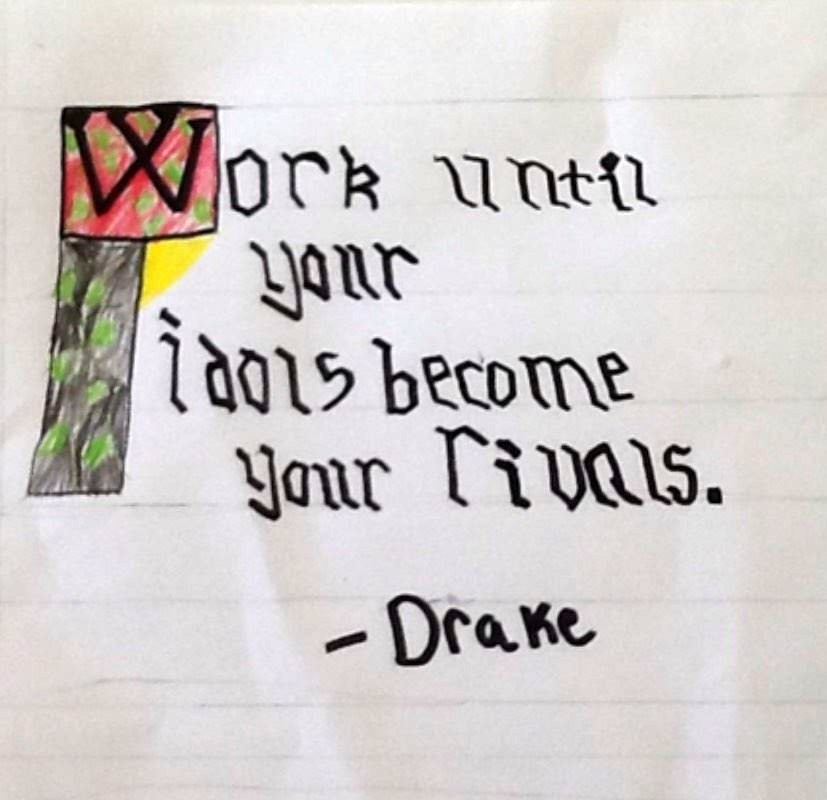 Work until
your
idols become
your rivals.
- Drake